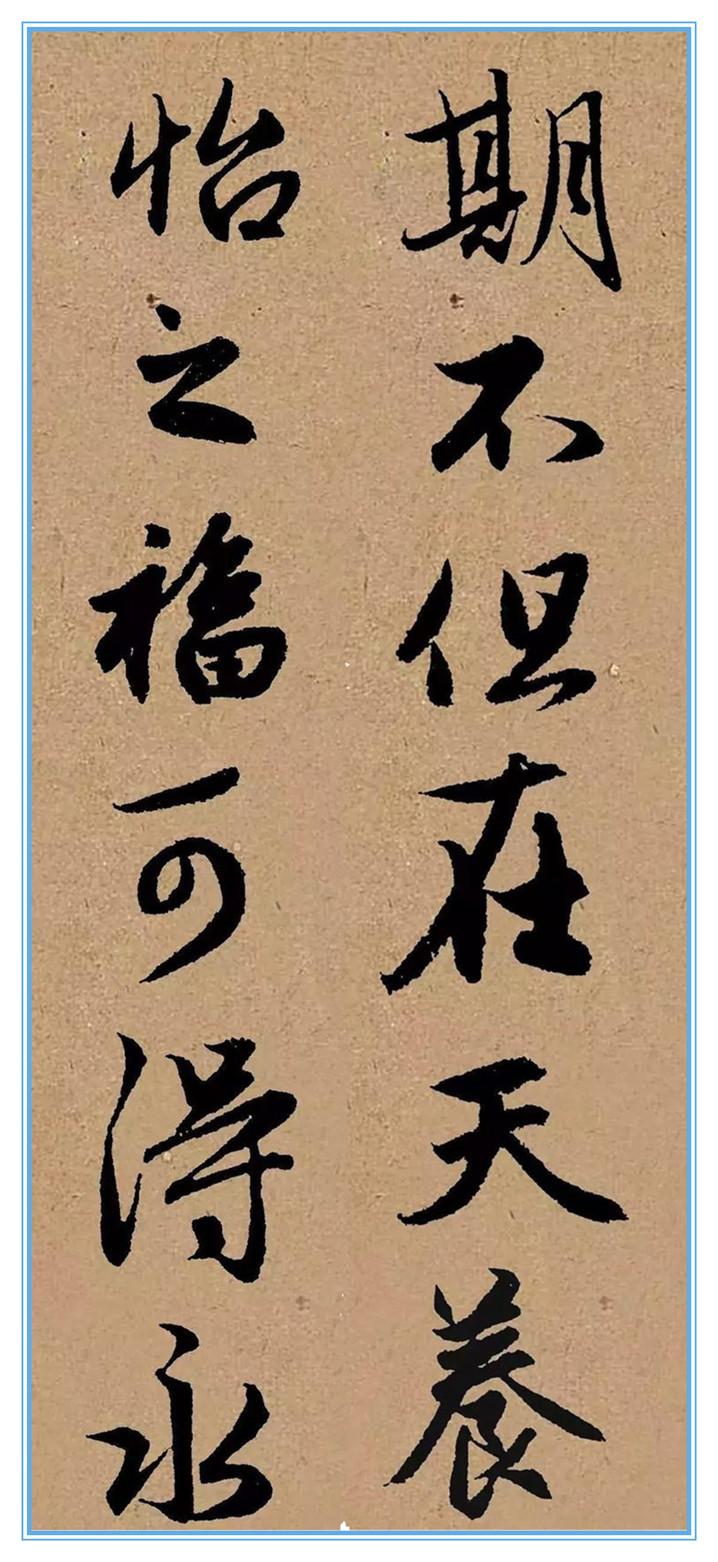 期不但在天養
怡之福可得永